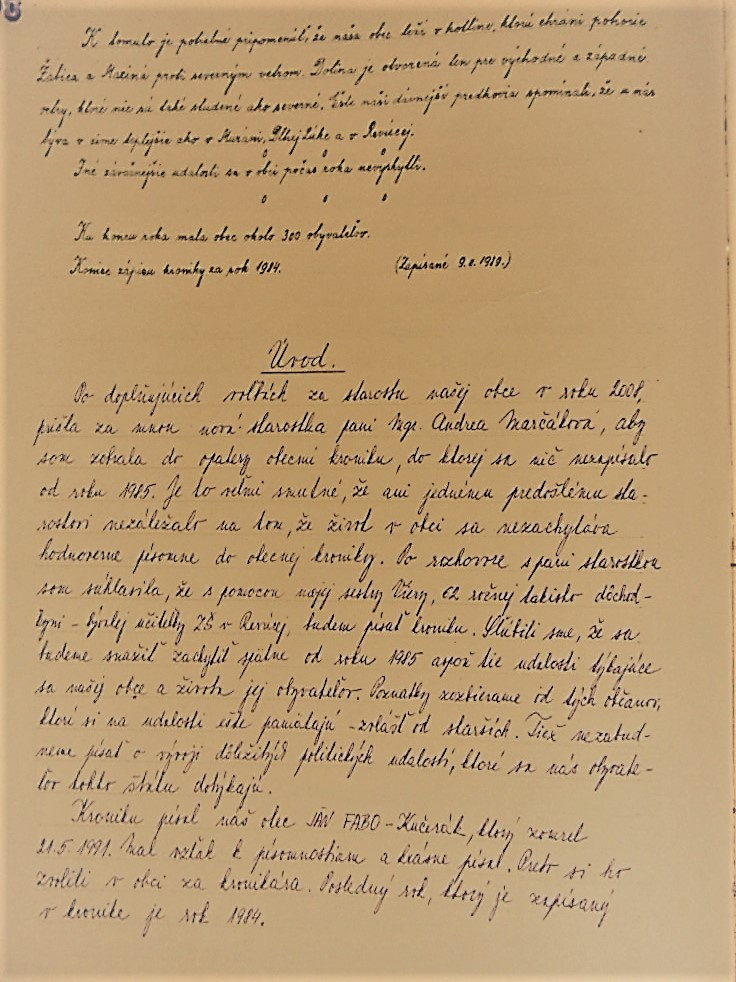 K tomuto je potrebné pripomenúť, že naša obec leží v kotline, ktorú chráni pohorie
Žalica a Maginá proti severným vetrom. Dolina je otvorená len pre východné a západné
vetry, ktoré nie sú také studené ako severné. Ešte naši dávnejší predkovia spomínali, že u nás
býva v zime teplejšie ako v Muráni, Dlhej Lúke a v Revúcej.
Iné závažnejšie udalosti sa v obci počas roka nevyskytli.
o o o
Ku koncu roka mala obec okolo 300 obyvateľov.
Koniec zápisu kroniky za rok 1984. (Zapísané 9.2.1989.)
Úvod.
Po doplňujúcich voľbách za starostu našej obce v roku 2008,
prišla za mnou nová starostka pani Mgr. Andrea Marčáková, aby
som zobrala do opatery obecnú kroniku, do ktorej sa nič nezapísalo
od roku 1985. Je to veľmi smutné, že ani jednému predošlému sta-
rostovi nezáležalo na tom, že život v obci sa nezachytáva
hodnoverne písomne do obecnej kroniky. Po rozhovore s pani starostkou
som súhlasila, že s pomocou mojej sestry Viery, 62 ročnej takisto dôchod-
kyni - bývalej učiteľky ZŠ v Revúcej, budem písať kroniku. Sľúbili sme, že sa
budeme snažiť zachytiť spätne od roku 1985 aspoň tie udalosti týkajúce
sa našej obce a života jej obyvateľov. Poznatky pozbierame od tých občanov,
ktorí si na udalosti ešte pamätajú - zvlášť od starších. Tiež nezabud-
neme písať o vývoji dôležitých politických udalostí, ktoré sa nás obyvate-
ľov tohto štátu dotýkajú.
Kroniku písal náš otec JÁN FABO - Kučerák, ktorý zomrel
21.5.1991. Mal vzťah k písomnostiam a krásne písal. Preto si ho
zvolili v obci za kronikára. Posledný rok, ktorý je zapísaný
v kronike je rok 1984.